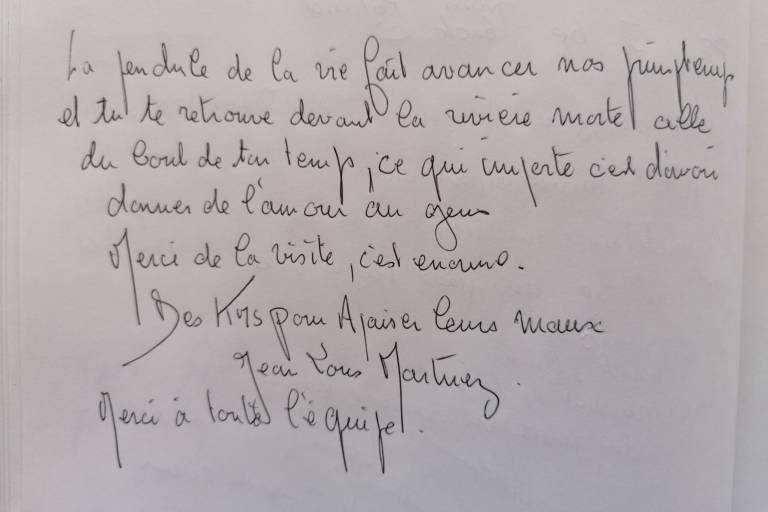 La pendule de la vie fait avancer nos printemps
et tu te retrouve devant la rivière morte celle
du bout de ton temp, ce qui importe c'est d'avoir
donner de l'amour au gens
Merci de la visite, c'est enorme.
Des Kys pour Apaiser leurs maux
Jean Louis Martinez.
Merci à toute l'équipe.